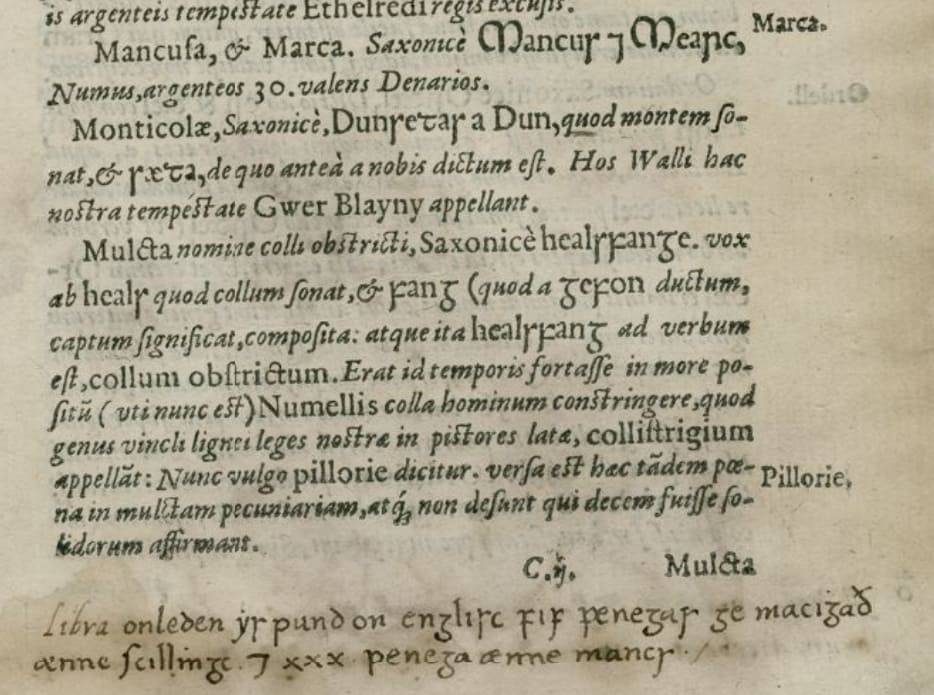 is argenteis tempestate Ethelredi regis excusis.
Mancusa, & Marca. Saxonicè Mancuſ ⁊ Meaꞃc, Marca.
Numus, argenteos 30. valens Denarios.
Monticolæ, Saxonicè, Dunſeꞇaſ a Dun, quod montem ſo-
nat, & ſæꞇa, de quo anteà a nobis dictum eſt. Hos Walli hac
noſtra tempeſtate Gwer Blayny appellant.
Mulcta nomine colli obſtricti, Saxonicè healſꝼanᵹe. vox
ab healſ quod collum ſonat, & ꝼanᵹ (quod a ᵹeꝼon ductum,
captum ſignificat, compoſita: atque ita healſꝼanᵹ ad verbum
eſt, collum obſtrictum. Erat id temporis fortaſſe in more po-
ſitũ (vti nunc eſt) Numellis colla hominum conſtringere, quod
genus vincli lignei leges noſtræ in piſtores latæ, colliſtrigium
appellãt: Nunc vulgo pillorie dicitur. verſa eſt hæc tãdem pœ- Pillorie.
na in mulctam pecuniariam, atq́; non deſunt qui decem fuiſſe ſo-
lidorum affirmant.
C.ij. Mulcta
Libra onleden ẏſ pund on enᵹliſc ꝼiꝼ peneᵹaſ ᵹe maciᵹað
ænne ſcillinᵹc. ⁊ xxx penega ænne mancſ